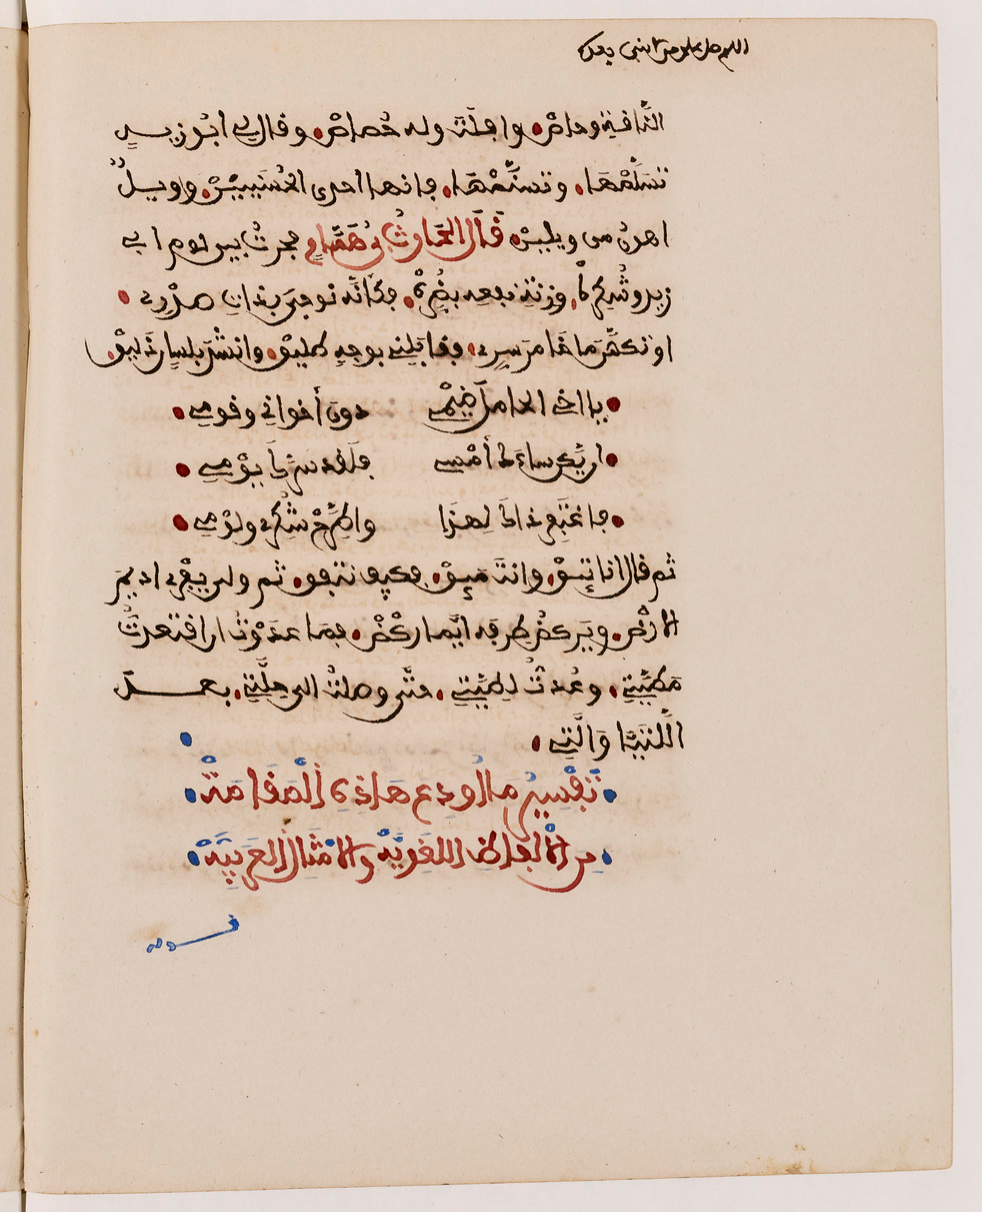 اللهم صل على من لا نبي بعده
النَّاقة وحاصْ • وافلَتَ وله حُصاصْ • وقال لي ابُو زيد
تسَلَّمْهَا • وتسنَّمْهَا • فانها احدى الحُسْنَييْنْ • وويلٌ
اهونُ من ويلينْ • قَالَ الحَارثُ بنُ هَمَّامٍ فحرتُ بين لوم ابي
زيد وشُكرِهْ • وزنَةِ نفعه بضُرِهْ • فكأنّه نوجيَ بذات صدْرِي •
او تكهّنَ ما خَامرَ سِرِي • فقابَلَنِي بوجهٍ طليقْ • وانشدَ بلسان ذَليقْ •
• يا اخي الحامل ضَيْمِي دون أخواني وقومي •
• ان يكن ساءَكَ أمْسِي فلَقد سرَّكَ يوْمِي •
• فاغتَفِر ذاكَ لهذا واطَّرِحْ شُكْرِي ولَوْمِي •
ثم قال انا تئِقْ • وانتَ مئِقْ • فكيف نتفق • ثم ولى يفْرِي اديمَ
الأرْضِ • ويَركضُ طِرفه ايَّما ركْضْ • فمَا عدَوْتُ ان اقتعدتُ
مَطيَّتِي • وعُدتُ لطِيَّتِي • حتَّى وصلتُ الى حِلَّتِي • بعدَ
اللَّتيَّا وَالَّتِي •
• تَفْسِيرُ ما اُودِعَ هَاذِهِ اَلْمَقَامَةْ •
• مِن الْالفاظ اللغَوِيَّةْ وَالْامْثَالِ العَرَبِيَّةْ •
قوله